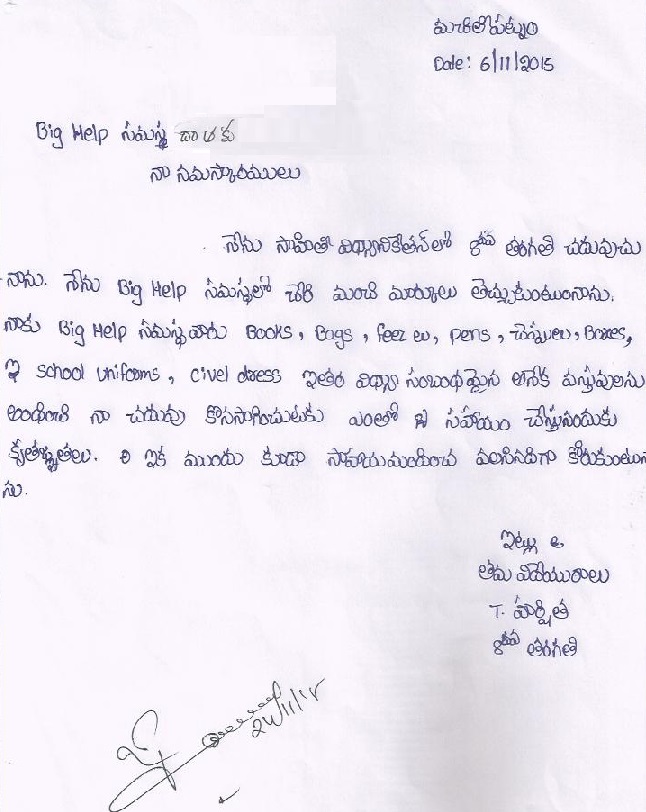 మచిలీపట్నం
Date: 6/11/2015
Big Help సమస్థ వారికు
నా నమస్కారములు
నేను సాహితి విధ్యానికేతన్ లో 8వ తరగతి చదువుచు
నాను. నేను Big Help సమస్థలో చేరి మంచి మార్కులు తెచ్చుకుంటుంనాను.
నాకు Big Help సమస్థవారు Books, Bags, feez లు, pens, పెన్సులు, Boxes,
school uniforms, civel dress ఇతర విధ్యా సంబంధమైన అనేక వస్తువులను
అందించి నా చదువు కొనసాగించుటకు ఎంతో సహాయం చేస్తునందుకు
కృతజ్ఞతలు. ఇక ముందు కూడా సాహాయమందించ వలసినదిగా కోరుకుంటునా
ను.
ఇట్లు
తమ విదేయురాలు
T. హర్షిత
8వ తరగతి
24/11/15